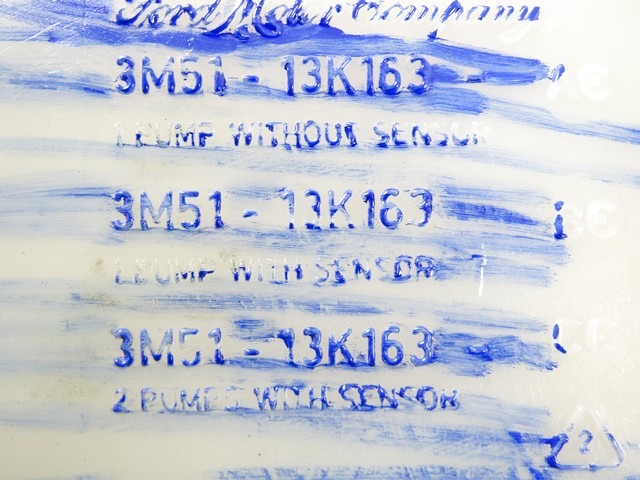 Ford Motor Company
3M51 - 13K163 - AE
1 PUMP WITHOUT SENSOR
3M51 - 13K163 BE
1 PUMP WITH SENSOR
3M51 - 13K163 CE
2 PUMPS WITH SENSOR
2